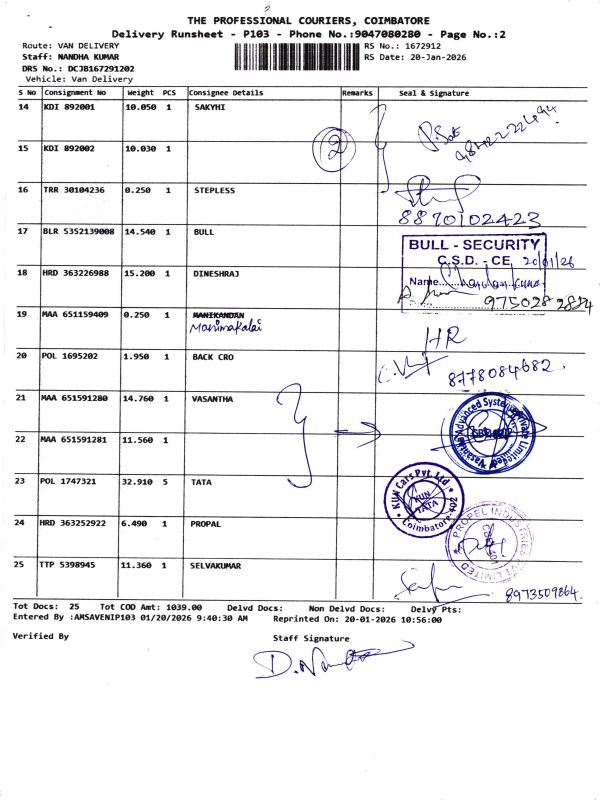 THE PROFESSIONAL COURIERS, COIMBATORE
Delivery Runsheet - P103 - Phone No.:9047080280 - Page No.:2
Route: VAN DELIVERY
Staff: NANDHA KUMAR
DRS No.: DCJB167291202
Vehicle: Van Delivery
RS No.: 1672912
RS Date: 20-Jan-2026
S No Consignment No Weight PCS Consignee Details Remarks Seal & Signature
14 KDI 892001 10.050 1 SAKYHI
15 KDI 892002 10.030 1
2
16 TRR 30104236 0.250 1 STEPLESS
8870102423
17 BLR 5352139008 14.540 1 BULL
BULL - SECURITY
C.S.D. - CE 20/01/26
Name
18 HRD 363226988 15.200 1 DINESHRAJ
9750282884
19 MAA 651159409 0.250 1 MANIKANDAN
Manimakalai
HR
20 POL 1695202 1.950 1 BACK CRO
8778084682
21 MAA 651591280 14.760 1 VASANTHA
Vasantha Advanced Systems Private Limited
22 MAA 651591281 11.560 1
23 POL 1747321 32.910 5 TATA
KUN Cars Pvt. Ltd
KUN TATA
Coimbatore-402
24 HRD 363252922 6.490 1 PROPAL
PROPEL INDUSTRIES PVT LIMITED
25 TTP 5398945 11.360 1 SELVAKUMAR
8973509864.
Tot Docs: 25 Tot COD Amt: 1039.00 Delvd Docs: Non Delvd Docs: Delvy Pts:
Entered By :AMSAVENIP103 01/20/2026 9:40:30 AM Reprinted On: 20-01-2026 10:56:00
Verified By Staff Signature